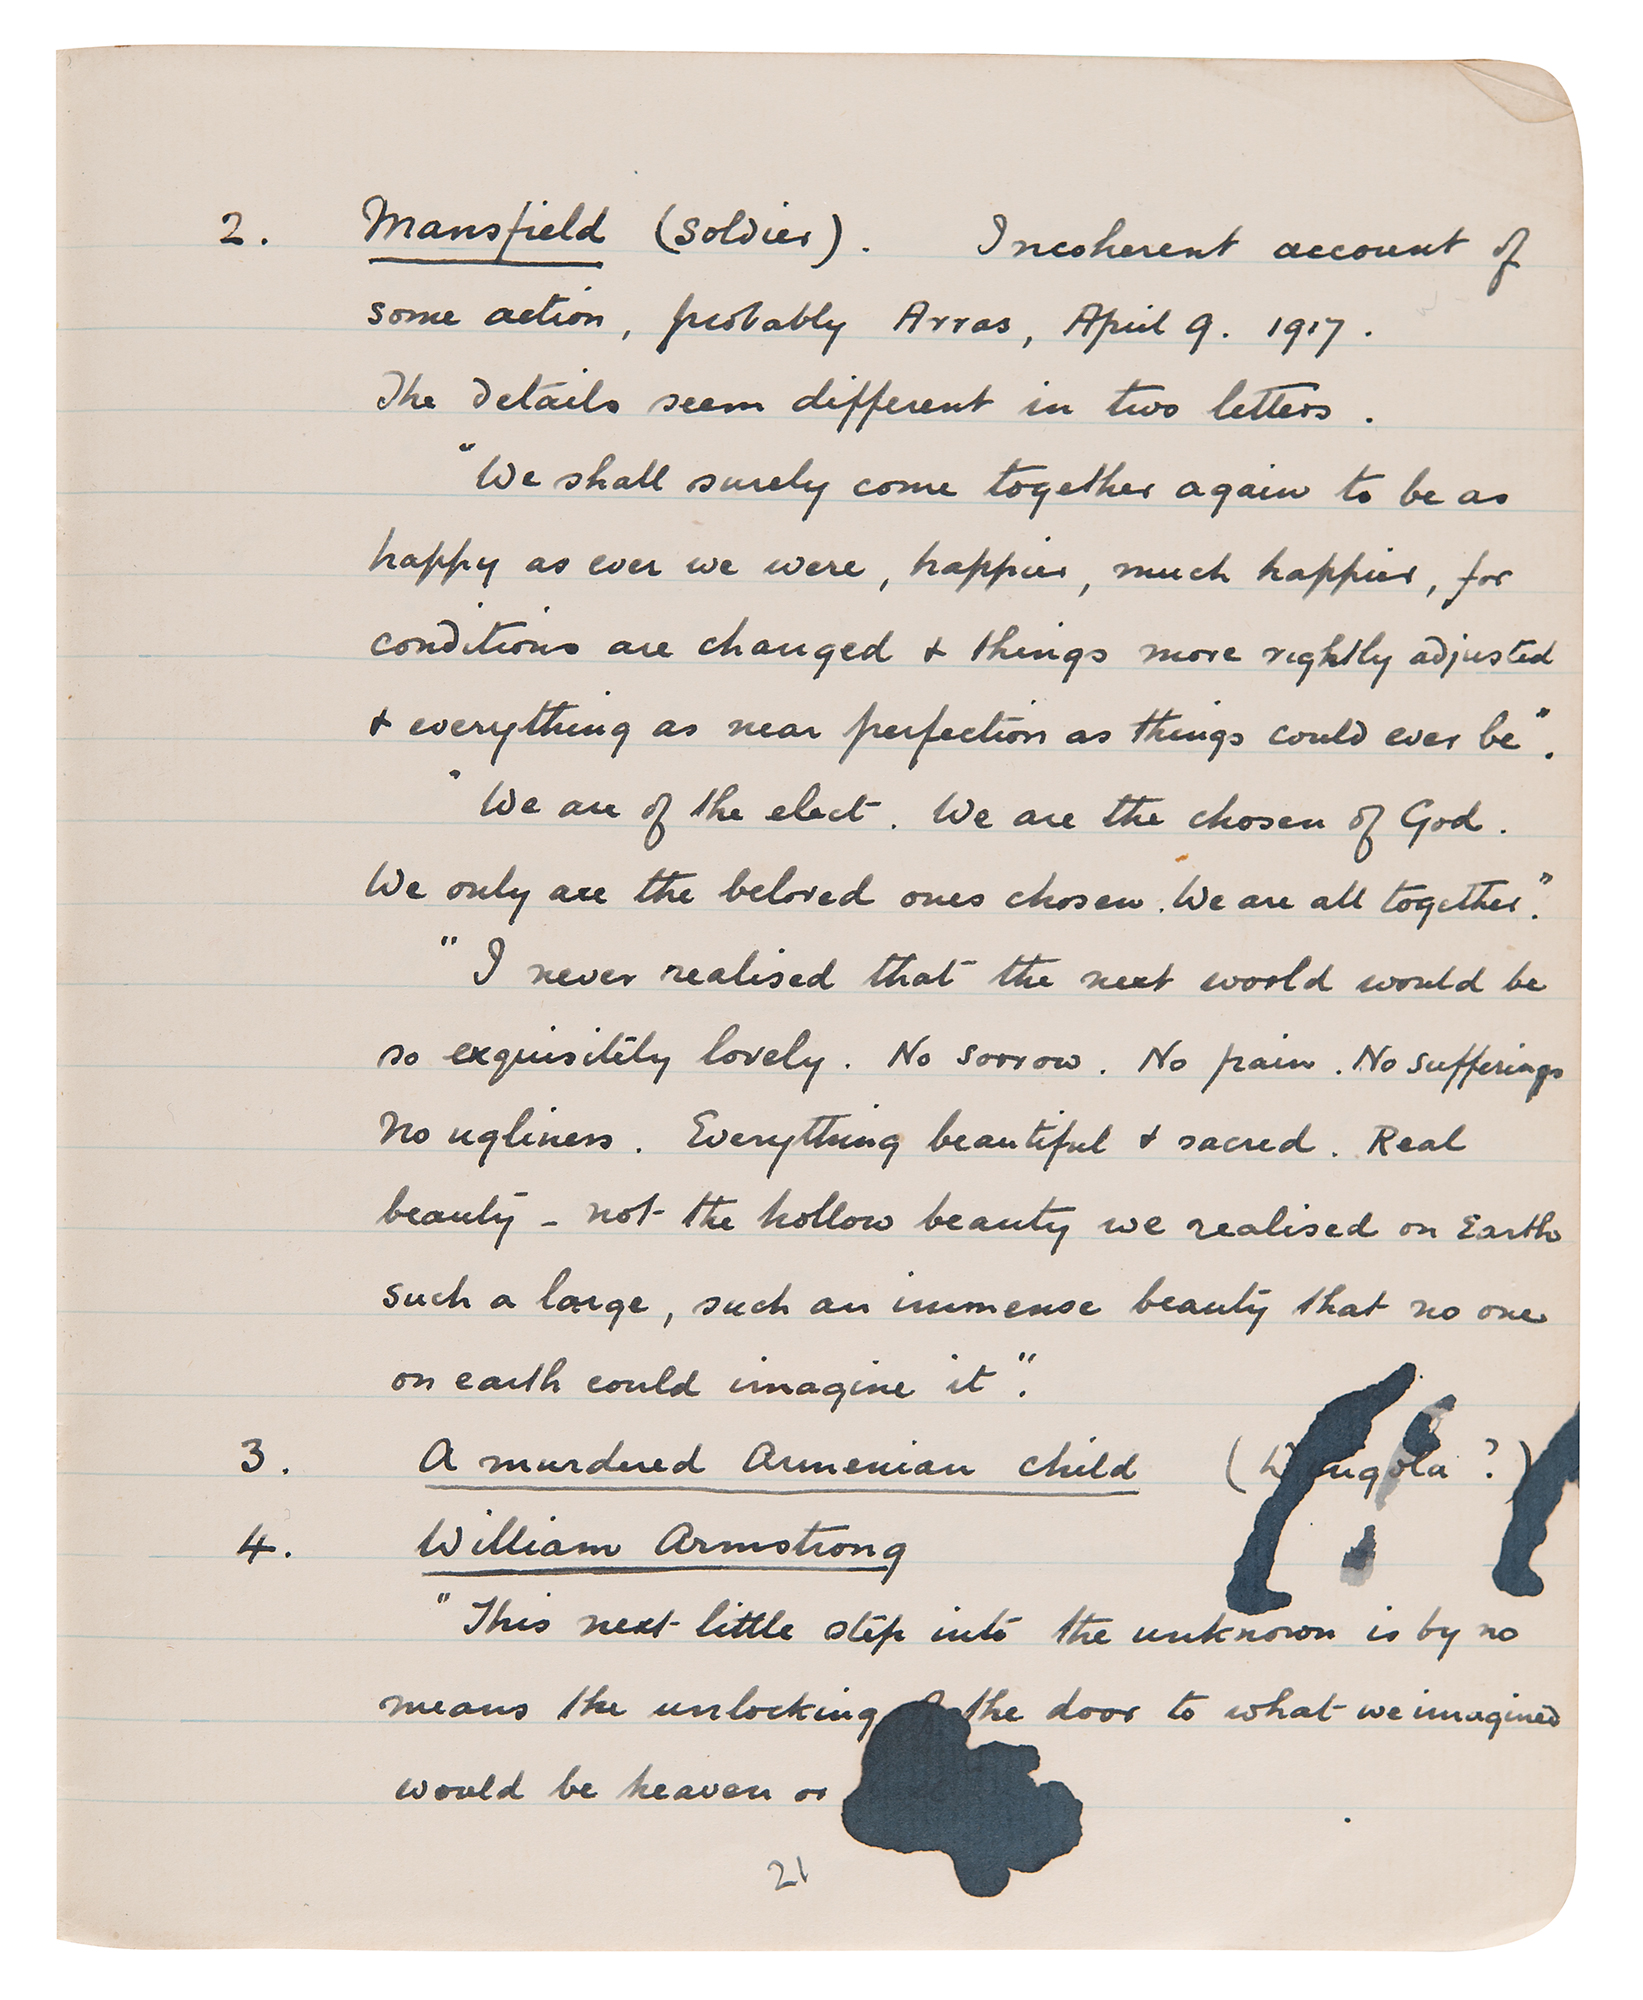 2. Mansfield (soldier). Incoherent account of
some action, probably Arras, April 9. 1917.
The details seem different in two letters.
"We shall surely come together again to be as
happy as ever we were, happier, much happier, for
conditions are changed & things more rightly adjusted
& everything as near perfection as things could ever be".
"We are of the elect. We are the chosen of God.
We only are the beloved ones chosen. We are all together".
"I never realised that the next world would be
so exquisitely lovely. No sorrow. No pain. No sufferings
No ugliness. Everything beautiful & sacred. Real
beauty - not the hollow beauty we realised on Earth
such a large, such an immense beauty that no one
on earth could imagine it".
3. A murdered Armenian child ( ?)
4. William Armstrong
"This next little step into the unknown is by no
means the unlocking the door to what we imagined
would be heaven or
21